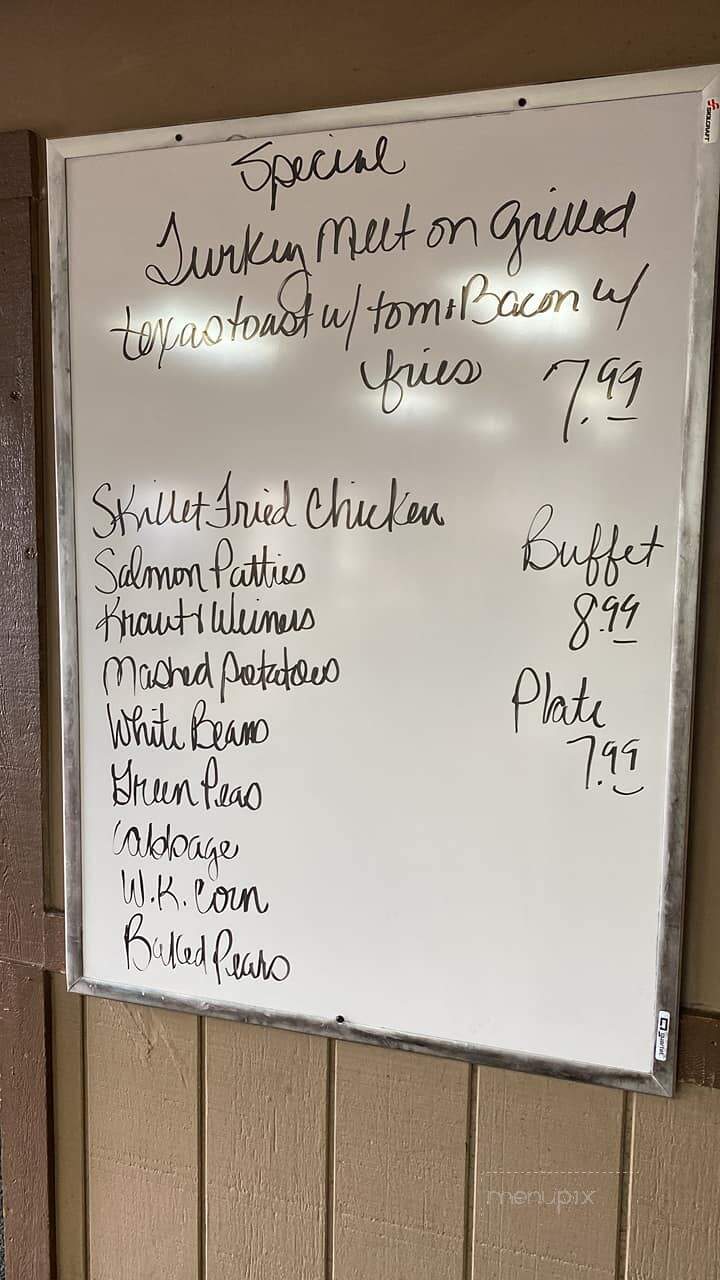 Special
Turkey Melt on Grilled
texas toast w/ tom + Bacon w/
fries 7.99
Skillet Fried Chicken
Salmon Patties
Kraut & Weiners
Mashed Potatoes
White Beans
Green Peas
Cabbage
W.K. Corn
Baked Pears
Buffet
8.99
Plate
7.99
SKILCRAFT
Quartet
menupix